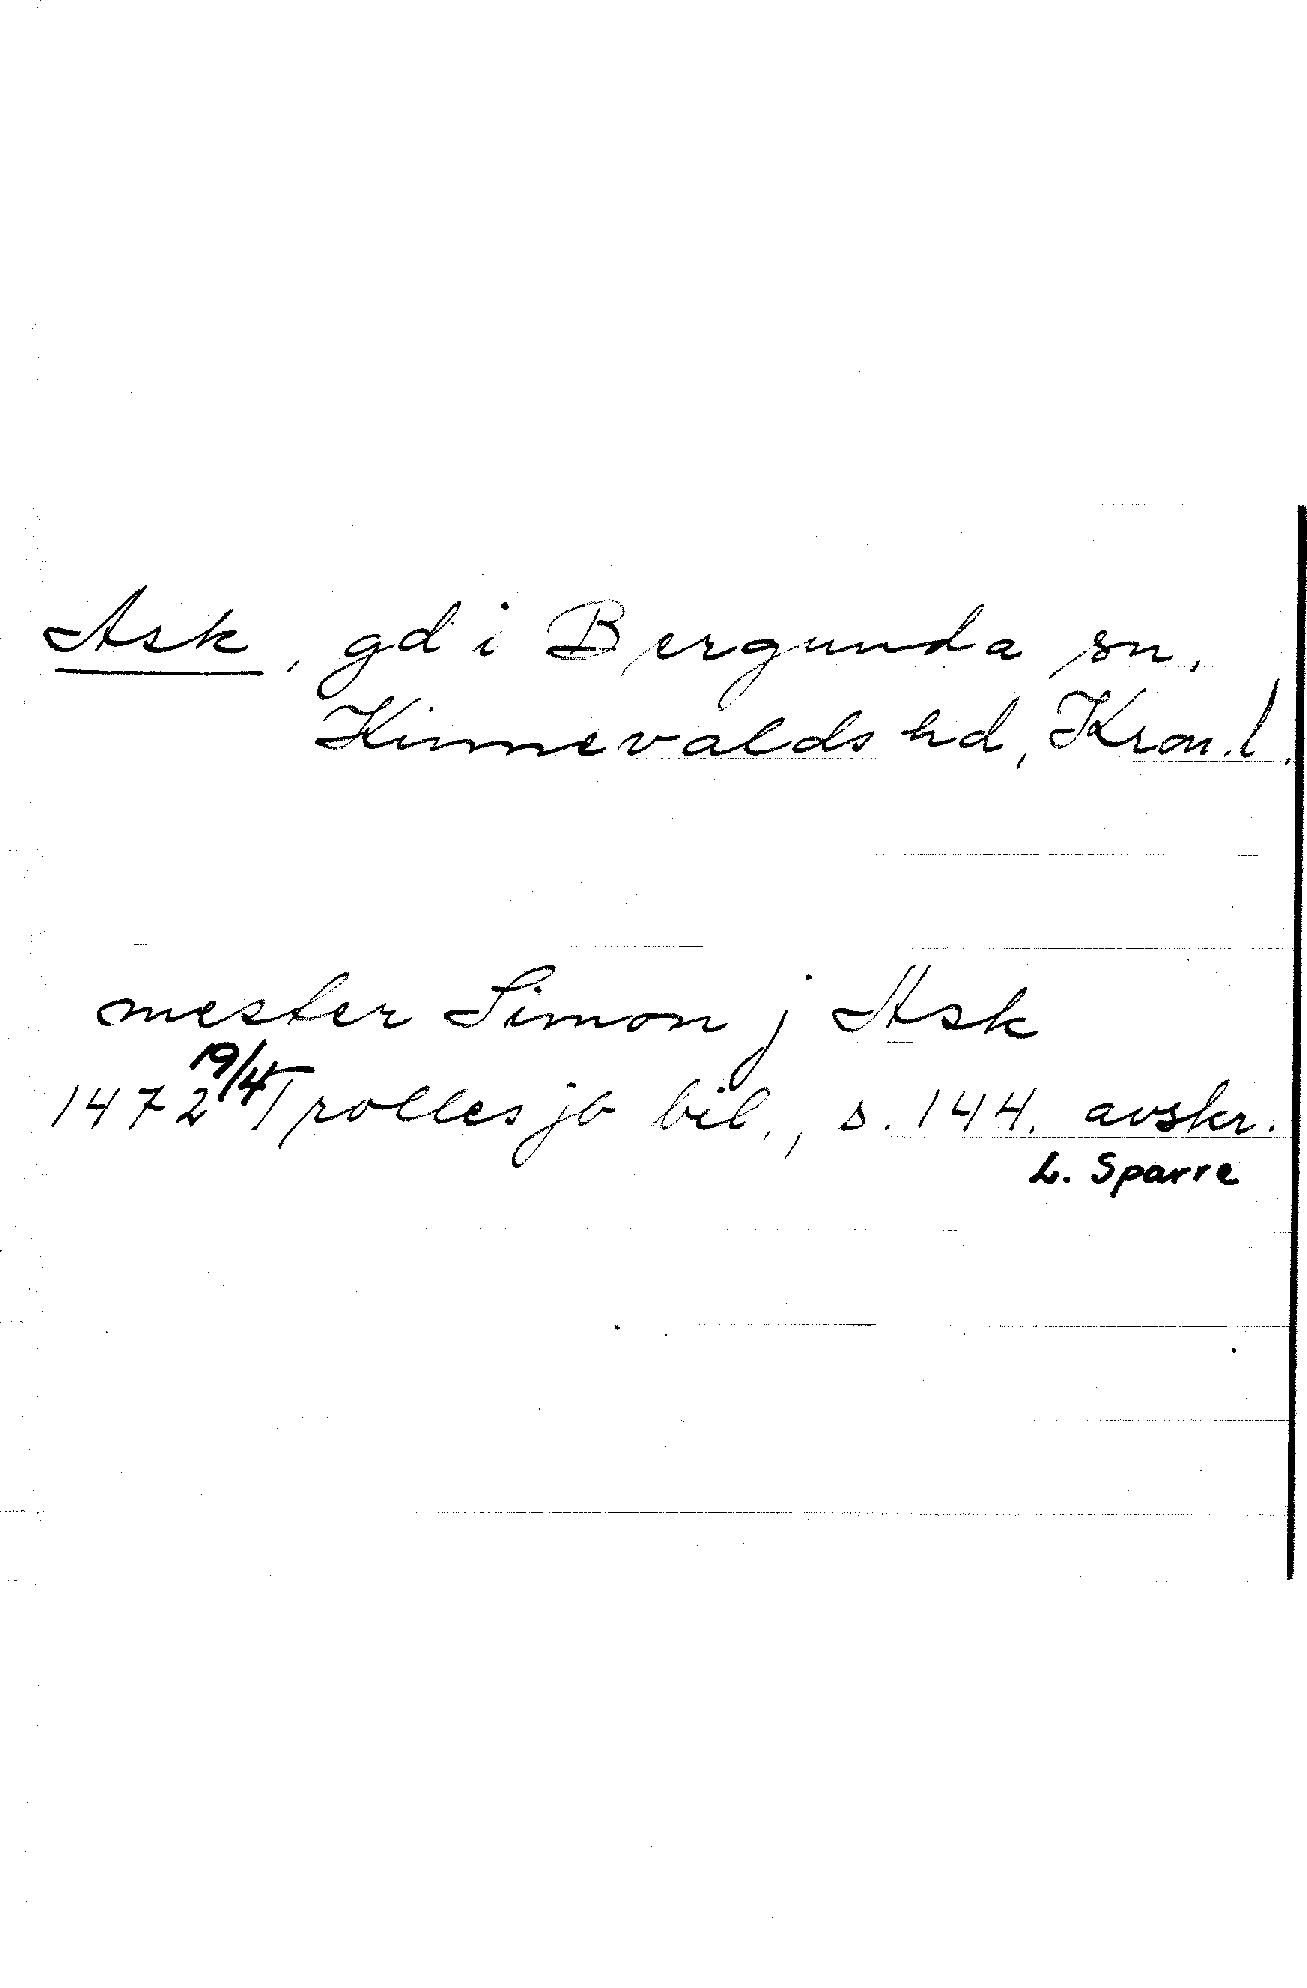 Ask, gd i Bergunda sn,
Kinnevalds hd, Kron.l.
mester Simon j Ask
1472 19/4 Trolles jb bil., s. 144. avskr.
L. Sparre